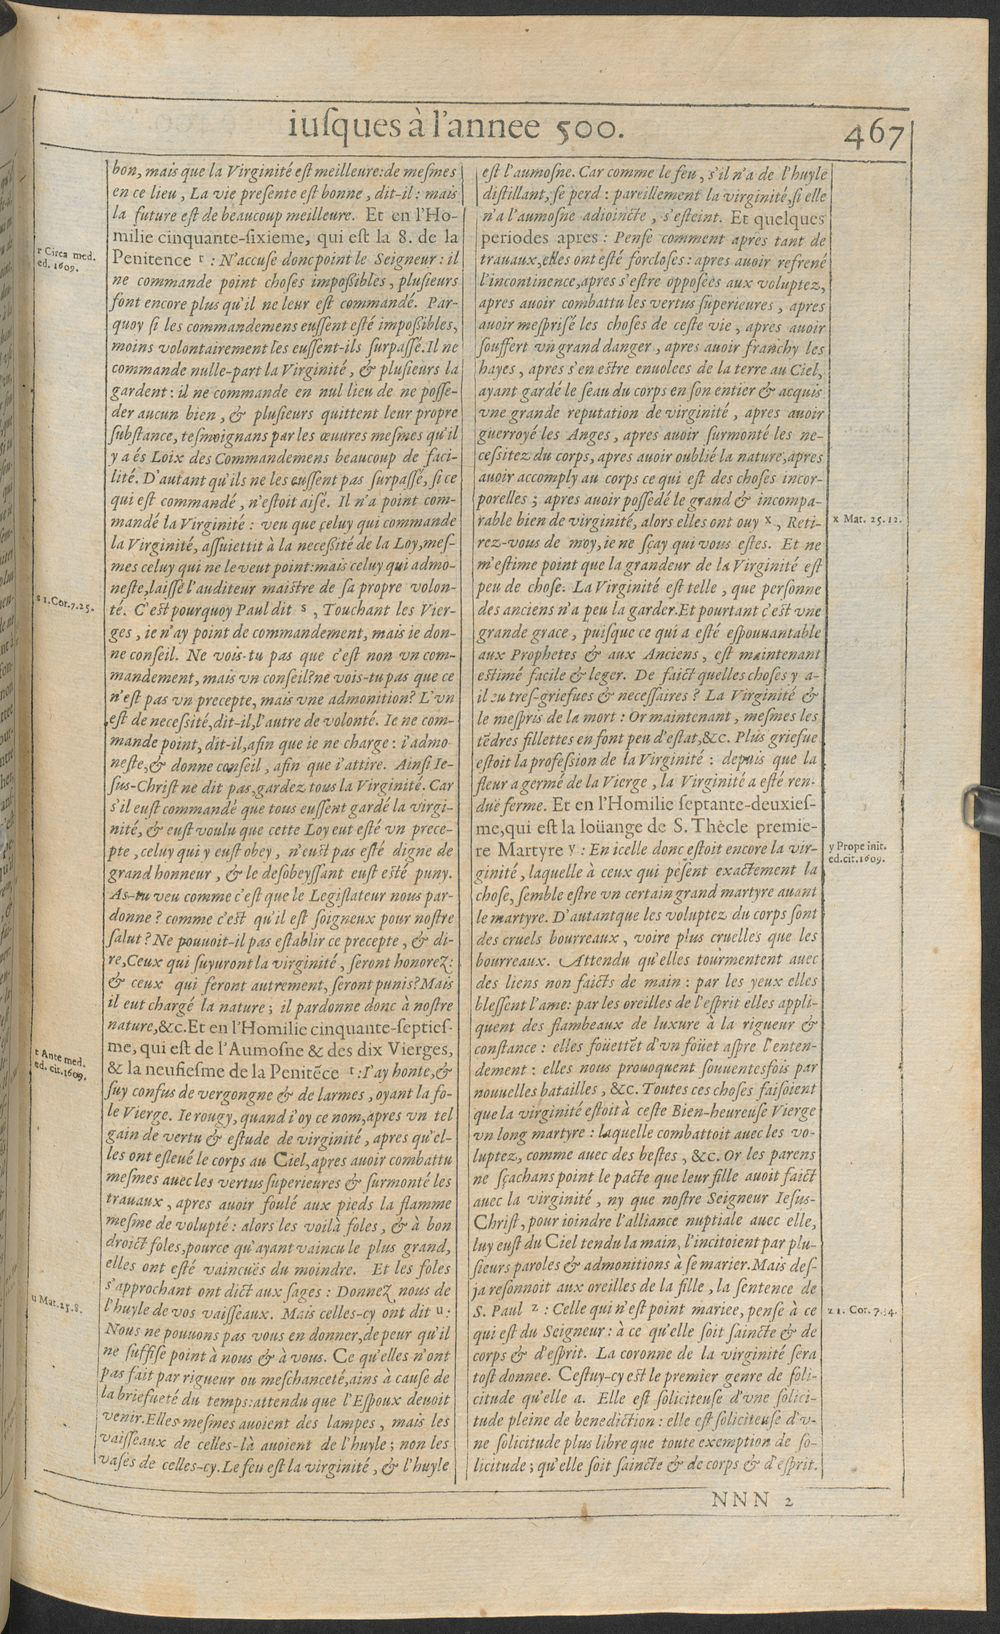 iuſques à l'annee 500.
467
bon, mais que la Virginité eſt meilleure: de meſmes
en ce lieu, La vie preſente eſt bonne, dit-il: mais
la future eſt de beaucoup meilleure. Et en l'Ho-
milie cinquante-ſixieme, qui eſt la 8. de la
Penitence r : N'accuſe donc point le Seigneur: il
ne commande point choſes impoſſibles, pluſieurs
font encore plus qu'il ne leur eſt commandé. Par-
quoy ſi les commandemens euſſent eſté impoſſibles,
moins volontairement les euſſent-ils ſurpaſſé. Il ne
commande nulle-part la Virginité, & pluſieurs la
gardent: il ne commande en nul lieu de ne poſſe-
der aucun bien, & pluſieurs quittent leur propre
ſubſtance, teſmoignans par les œuures meſmes qu'il
y a és Loix des Commandemens beaucoup de faci-
lité. D'autant qu'ils ne les euſſent pas ſurpaſſé, ſi ce
qui eſt commandé, n'eſtoit aiſé. Il n'a point com-
mandé la Virginité: veu que celuy qui commande
la Virginité, aſſuiettit à la neceſſité de la Loy, meſ-
mes celuy qui ne le veut point: mais celuy qui admo-
neſte, laiſſe l'auditeur maiſtre de ſa propre volon-
té. C'eſt pourquoy Paul dit s, Touchant les Vier-
ges, ie n'ay point de commandement, mais ie don-
ne conſeil. Ne vois-tu pas que c'eſt non vn com-
mandement, mais vn conſeil? ne vois-tu pas que ce
n'eſt pas vn precepte, mais vne admonition? L'vn
eſt de neceſſité, dit-il, l'autre de volonté. Ie ne com-
mande point, dit-il, afin que ie ne charge: i'admo-
neſte, & donne conſeil, afin que i'attire. Ainſi Ie-
ſus-Chriſt ne dit pas, gardez tous la Virginité. Car
s'il euſt commandé que tous euſſent gardé la virgi-
nité, & euſt voulu que cette Loy eut eſté vn prece-
pte, celuy qui y euſt obey, n'euſt pas eſté digne de
grand honneur, & le desobeyſſant euſt eſté puny.
As-tu veu comme c'eſt que le Legiſlateur nous par-
donne? comme c'eſt qu'il eſt ſoigneux pour noſtre
ſalut? Ne pouuoit-il pas eſtablir ce precepte, & di-
re, Ceux qui ſuyuront la virginité, ſeront honorez:
& ceux qui feront autrement, ſeront punis? Mais
il eut chargé la nature; il pardonne donc à noſtre
nature, &c. Et en l'Homilie cinquante-ſeptieſ-
me, qui eſt de l'Aumoſne & des dix Vierges,
& la neufieſme de la Penitẽce t : I'ay honte, &
ſuy confus de vergongne & de larmes, oyant la fo-
le Vierge. Ie rougy, quand i'oy ce nom, apres vn tel
gain de vertu & eſtude de virginité, apres qu'el-
les ont eſleué le corps au Ciel, apres auoir combattu
meſmes auec les vertus ſuperieures & ſurmonté les
trauaux, apres auoir foulé aux pieds la flamme
meſme de volupté: alors les voilà foles, & à bon
droict foles, pource qu'ayant vaincu le plus grand,
elles ont eſté vaincuës du moindre. Et les foles
s'approchant ont dict aux ſages: Donnez nous de
l'huyle de vos vaiſſeaux. Mais celles-cy ont dit u:
Nous ne pouuons pas vous en donner, de peur qu'il
ne ſuffiſe point à nous & à vous. Ce qu'elles n'ont
pas fait par rigueur ou meſchanceté, ains à cauſe de
la briefueté du temps: attendu que l'Eſpoux deuoit
venir. Elles meſmes auoient des lampes, mais les
vaiſſeaux de celles-là auoient de l'huyle; non les
vaſes de celles-cy. Le feu eſt la virginité, & l'huyle
r Circa med.
ed. 1609.
s 1. Cor. 7. 25.
t Ante med.
ed. cit. 1609.
u Mat. 25. 8.
eſt l'aumoſne. Car comme le feu, s'il n'a de l'huyle
diſtillant, ſe perd: pareillement la virginité, ſi elle
n'a l'aumoſne adioincte, s'eſteint. Et quelques
periodes apres: Penſe comment apres tant de
trauaux, elles ont eſté forcloſes: apres auoir refrené
l'incontinence, apres s'eſtre oppoſées aux voluptez,
apres auoir combattu les vertus ſuperieures, apres
auoir meſpriſé les choſes de ceſte vie, apres auoir
ſouffert vn grand danger, apres auoir franchy les
hayes, apres s'en eſtre enuolees de la terre au Ciel,
ayant gardé le ſeau du corps en ſon entier & acquis
vne grande reputation de virginité, apres auoir
guerroyé les Anges, apres auoir ſurmonté les ne-
ceſſitez du corps, apres auoir oublié la nature, apres
auoir accomply au corps ce qui eſt des choſes incor-
porelles; apres auoir poſſedé le grand & incompa-
rable bien de virginité, alors elles ont ouy x, Reti-
rez-vous de moy, ie ne ſçay qui vous eſtes. Et ne
m'eſtime point que la grandeur de la Virginité eſt
peu de choſe. La Virginité eſt telle, que perſonne
des anciens n'a peu la garder. Et pourtant c'eſt vne
grande grace, puiſque ce qui a eſté eſpouuantable
aux Prophetes & aux Anciens, eſt maintenant
eſtimé facile & leger. De faict quelles choſes y a-
il eu treſ-griefues & neceſſaires? La Virginité &
le meſpris de la mort: Or maintenant, meſmes les
tẽdres fillettes en font peu d'eſtat, &c. Plus griefue
eſtoit la profeſſion de la Virginité: depuis que la
fleur a germé de la Vierge, la Virginité a eſté ren-
duë ferme. Et en l'Homilie ſeptante-deuxieſ-
me, qui eſt la loüange de S. Thècle premie-
re Martyre y : En icelle donc eſtoit encore la vir-
ginité, laquelle à ceux qui peſent exactement la
choſe, ſemble eſtre vn certain grand martyre auant
le martyre. D'autant que les voluptez du corps ſont
des cruels bourreaux, voire plus cruelles que les
bourreaux. Attendu qu'elles tourmentent auec
des liens non faicts de main: par les yeux elles
bleſſent l'ame: par les oreilles de l'eſprit elles appli-
quent des flambeaux de luxure à la rigueur &
conſtance: elles foüettẽt d'vn foüet aſpre l'enten-
dement: elles nous prouoquent ſouuentesfois par
nouuelles batailles, &c. Toutes ces choſes faiſoient
que la virginité eſtoit à ceſte Bien-heureuſe Vierge
vn long martyre: laquelle combattoit auec les vo-
luptez, comme auec des beſtes, &c. Or les parens
ne ſçachans point le pacte que leur fille auoit faict
auec la virginité, ny que noſtre Seigneur Ieſus-
Chriſt, pour ioindre l'alliance nuptiale auec elle,
luy euſt du Ciel tendu la main, l'incitoient par plu-
ſieurs paroles & admonitions à ſe marier. Mais deſ-
ja reſonnoit aux oreilles de la fille, la ſentence de
S. Paul z : Celle qui n'eſt point mariee, penſe à ce
qui eſt du Seigneur: à ce qu'elle ſoit ſaincte & de
corps & d'eſprit. La coronne de la virginité ſera
toſt donnee. Ceſtuy-cy eſt le premier genre de ſoli-
citude qu'elle a. Elle eſt ſoliciteuſe d'vne ſolici-
tude pleine de benediction: elle eſt ſoliciteuſe d'v-
ne ſolicitude plus libre que toute exemption de ſo-
licitude; qu'elle ſoit ſaincte & de corps & d'eſprit.
x Mat. 25. 12.
y Prope init.
ed. cit. 1609.
z 1. Cor. 7. 34.
NNN 2